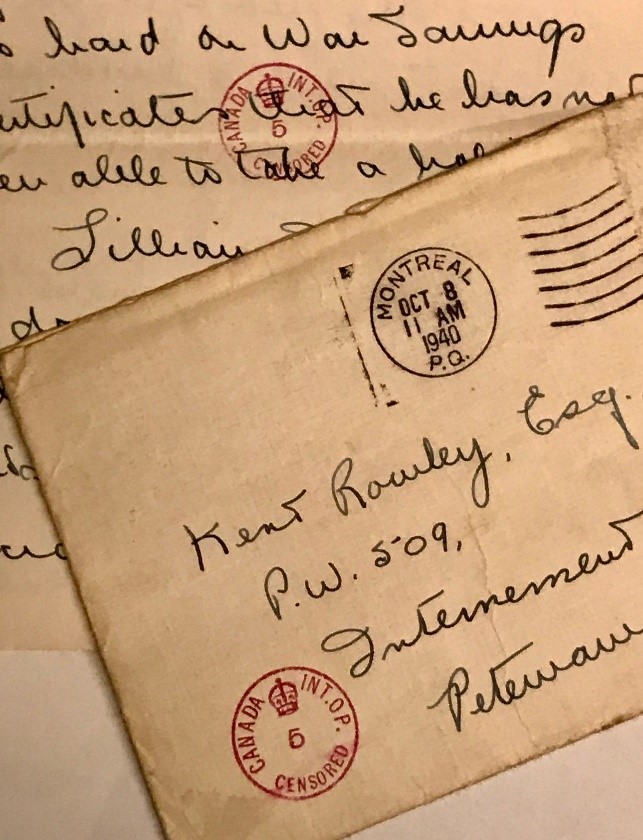 hard on War Savings
that he has not
able to take a
Lillian
CANADA INT. OP.
5
CENSORED
MONTREAL
OCT 8
11 AM
1940
P.Q.
Kent Rowley, Esq.
P.W. 509,
Internement
Petewaw
CANADA INT. OP.
5
CENSORED